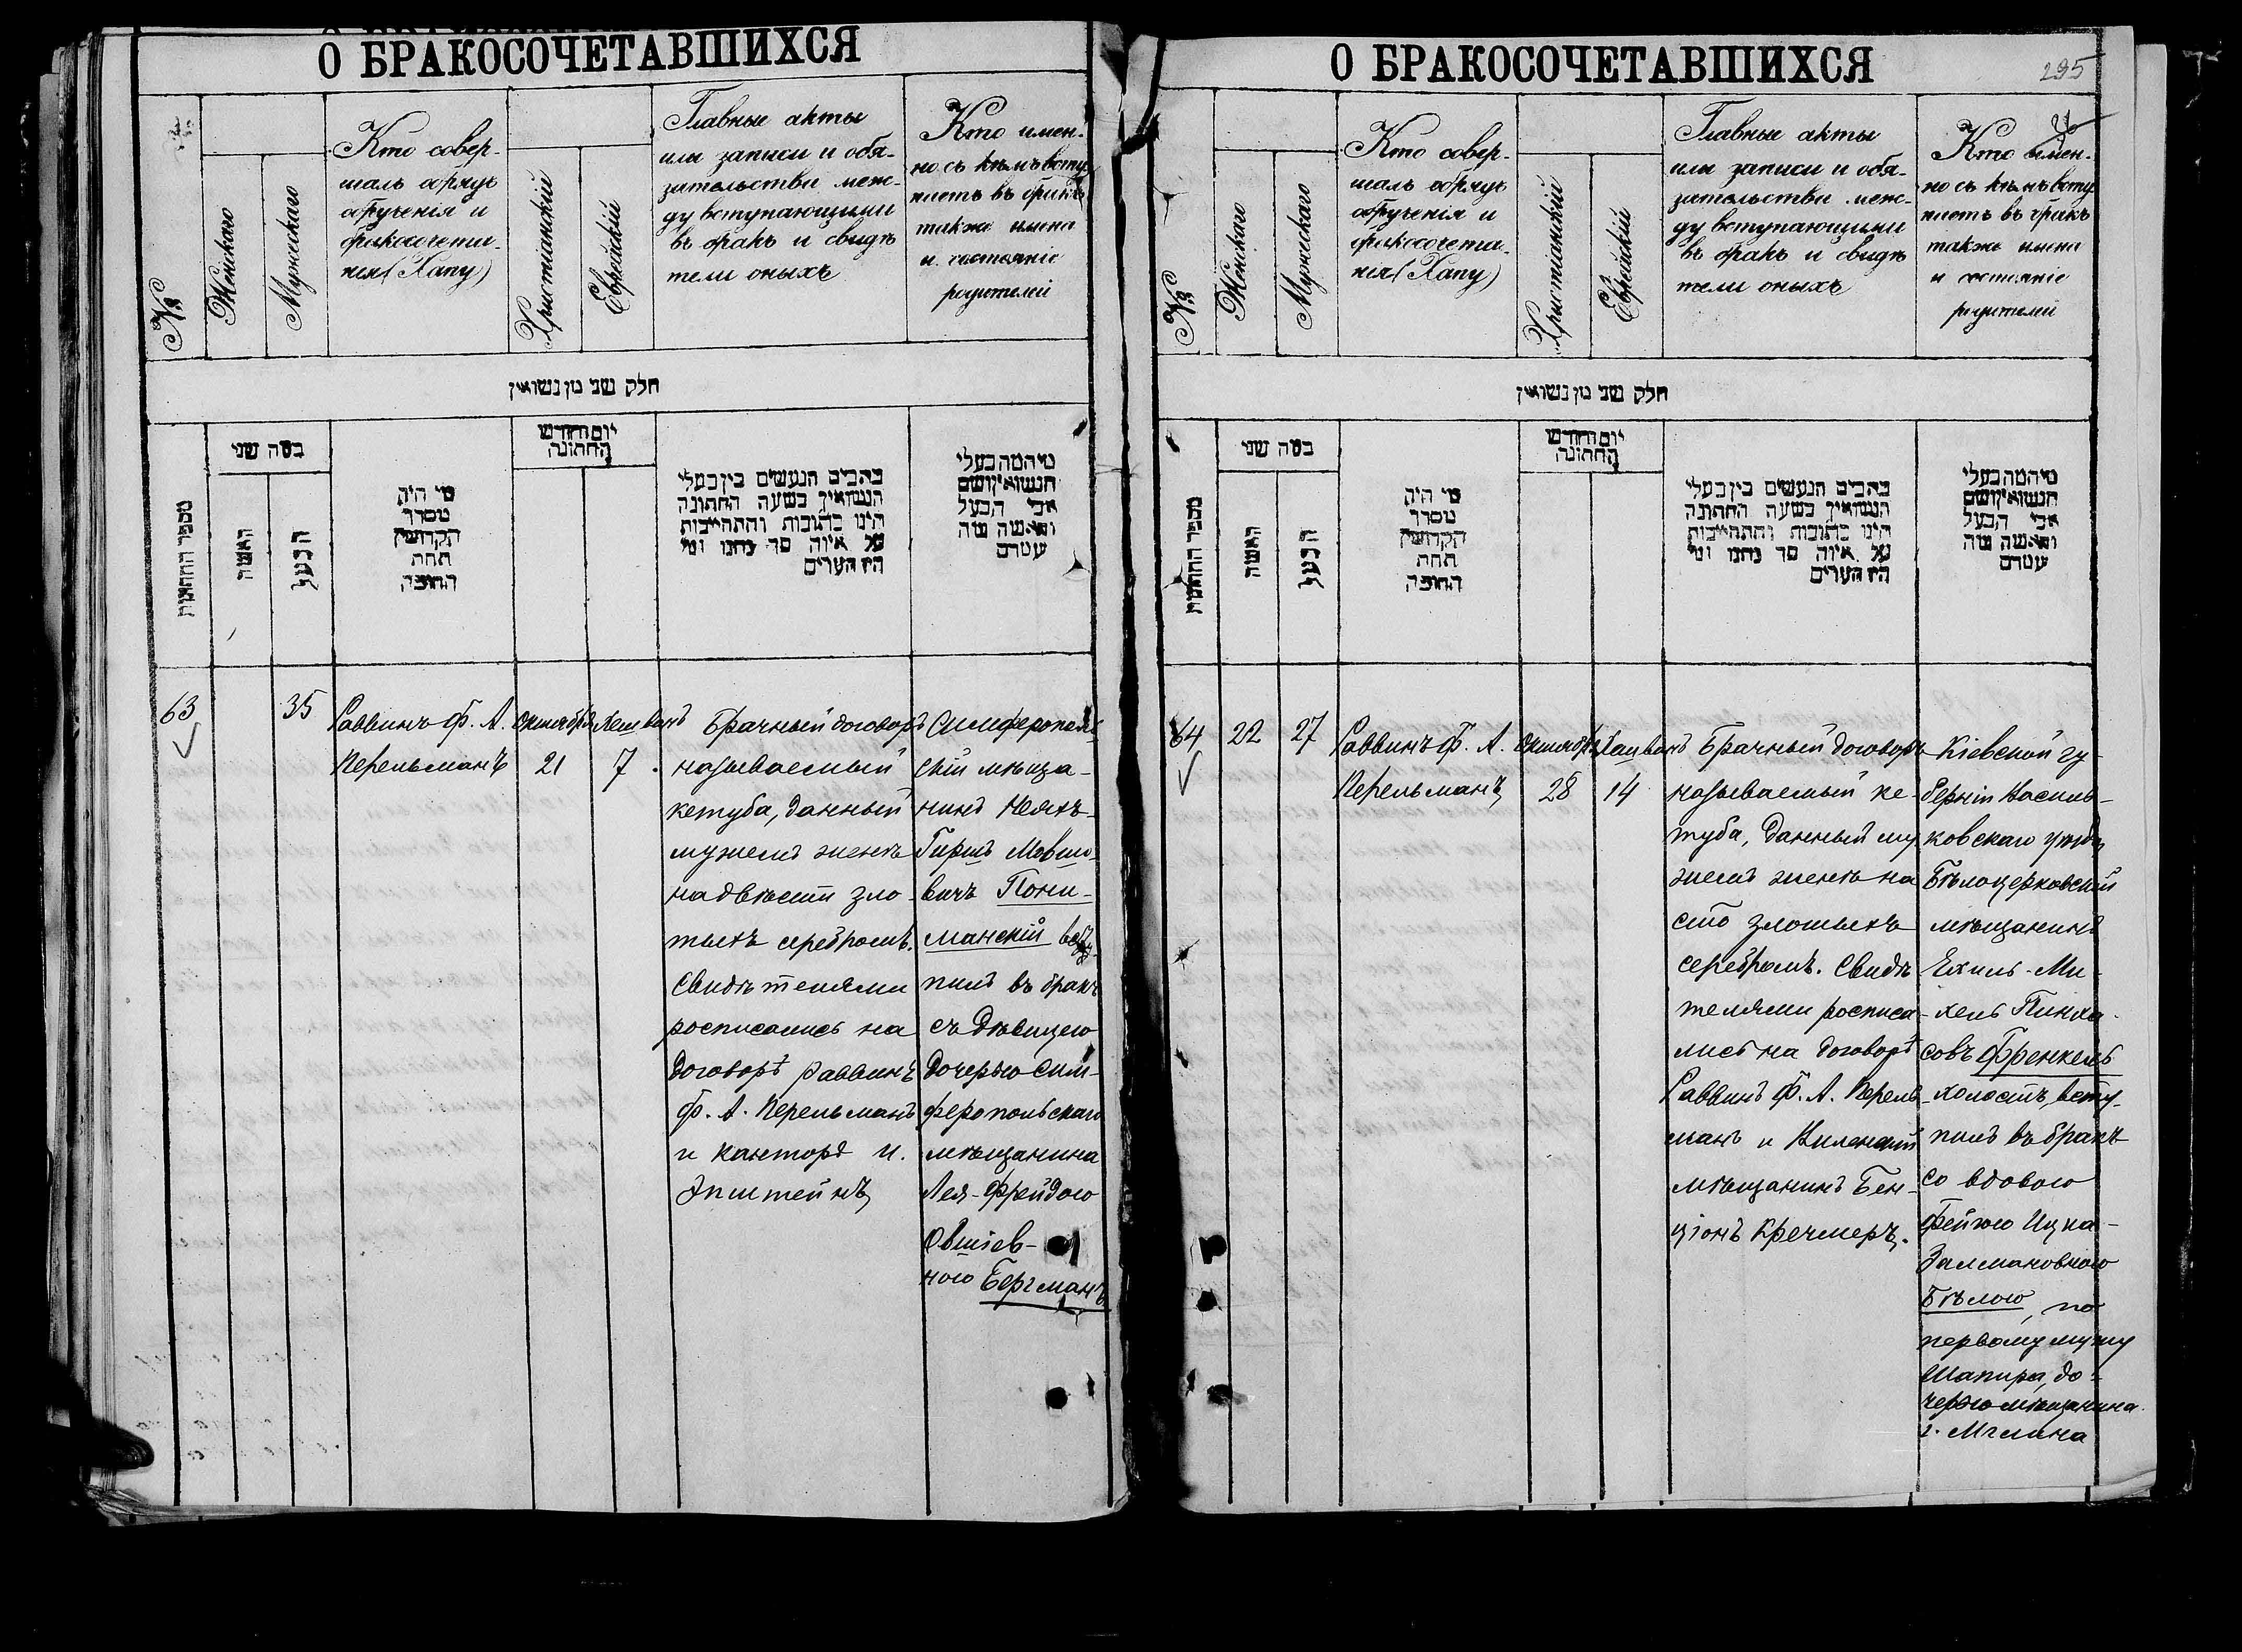 О БРАКОСОЧЕТАВШИХСЯ
№
Женскаго
Мужескаго
Кто совер-
шалъ обрядъ
обрученія и
бракосочета-
нія (Хапу)
Христіанскій
Еврейскій
Главные акты
или записи и обя-
зательства меж-
ду вступающими
въ бракъ и свидѣ
тели оныхъ
Кто имен-
но съ кѣмъ всту
паетъ въ бракъ
также имена
и состояніе
родителей
חלק שני מן נשואין
מספר החתונות
כמה שני
האשה
הבעל
מי היה
מסדר
הקדושין
תחת
החופה
יום וחודש
החתונה
כתבים הנעשים בין בעלי
הנשואין בשעה החתונה
היינו כתובות והתחייבות
על איזה סך נתנו ומי
היו העדים
מי המה בעלי
הנשואין ושם
אבי הבעל
והאשה ומה
עטרם
63
35
Раввинъ Ф. А.
Перельманъ
Октября
21
Хешванъ
7.
Брачный договоръ
называемый
кетуба, данный
мужемъ женѣ
на двѣсти зло-
тыхъ серебромъ.
Свидѣтелями
росписались на
договорѣ раввинъ
Ф. А. Перельманъ
и канторъ И.
Эпштейнъ
Симферополь
скій мѣща-
нинъ Неяхъ-
Гиршъ Мовшо-
вичъ Пони-
манскій всту-
пилъ въ бракъ
съ дѣвицею
дочерью Сим-
феропольскаго
мѣщанина
Лея-Фрейдою
Овшіев-
ною Бергманъ
О БРАКОСОЧЕТАВШИХСЯ
295
№
Женскаго
Мужескаго
Кто совер-
шалъ обрядъ
обрученія и
бракосочета-
нія (Хапу)
Христіанскій
Еврейскій
Главные акты
или записи и обя-
зательства меж-
ду вступающими
въ бракъ и свидѣ
тели оныхъ
Кто имен-
но съ кѣмъ всту
паетъ въ бракъ
также имена
и состояніе
родителей
חלק שני מן נשואין
מספר החתונות
כמה שני
האשה
הבעל
מי היה
מסדר
הקדושין
תחת
החופה
יום וחודש
החתונה
כתבים הנעשים בין בעלי
הנשואין בשעה החתונה
היינו כתובות והתחייבות
על איזה סך נתנו ומי
היו העדים
מי המה בעלי
הנשואין ושם
אבי הבעל
והאשה ומה
עטרם
64
22
27
Раввинъ Ф. А.
Перельманъ
Октября
28
Хашванъ
14
Брачный договоръ
называемый ке-
туба, данный му
жемъ женѣ на
сто злотыхъ
серебромъ. Свидѣ
телями росписа-
лись на договорѣ
Раввинъ Ф. А. Перель-
манъ и Виленскій
мѣщанинъ Бен-
ціонъ Кречмеръ.
Кіевской гу-
берніи Василь-
ковскаго уѣзда
Бѣлоцерковскій
мѣщанинъ
Ехиль-Ми-
хель Пинха-
совъ Френкель
холостъ, всту-
пилъ въ бракъ
со вдовою
Фейгою Ицка-
Залмановною
Бѣлою, по
первому мужу
Шапира, до-
черью мѣщанина
г. Мглина